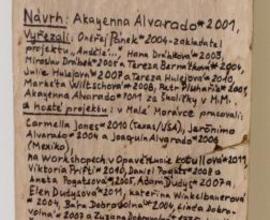 Návrh: Akayenna Alvarado*2001,
Vyřezali: Ondřej Pánek*2004-zakladatel
projektu „Anděl...", Hana Drábková*2003,
Miroslav Drábek* a Tereza *2004,
Julie Hulejová*2007 a Tereza Hulejová*2010,
Markéta Wiltschová*2008, Petr
Akayenna Alvarado*2011 za školičky v M.M.
a hosté projektu: v Malé Morávce pracovali:
Carmella Jones*2010 (Texas/USA), Jarónimo
Alvarado*2004 a Joaquín Alvarado*2006
(Mexiko),
na workshopech v Opavě: Lucie Kotullová*2011,
Viktoria *2010, Daniel a
Aneta *2005, Adam *2007 a
Elen *2011, Kateřina Winkelbauerová
*2004, Bára Dobrovolná*2004, Linda Dobro-
volná*2007 a Zuzana